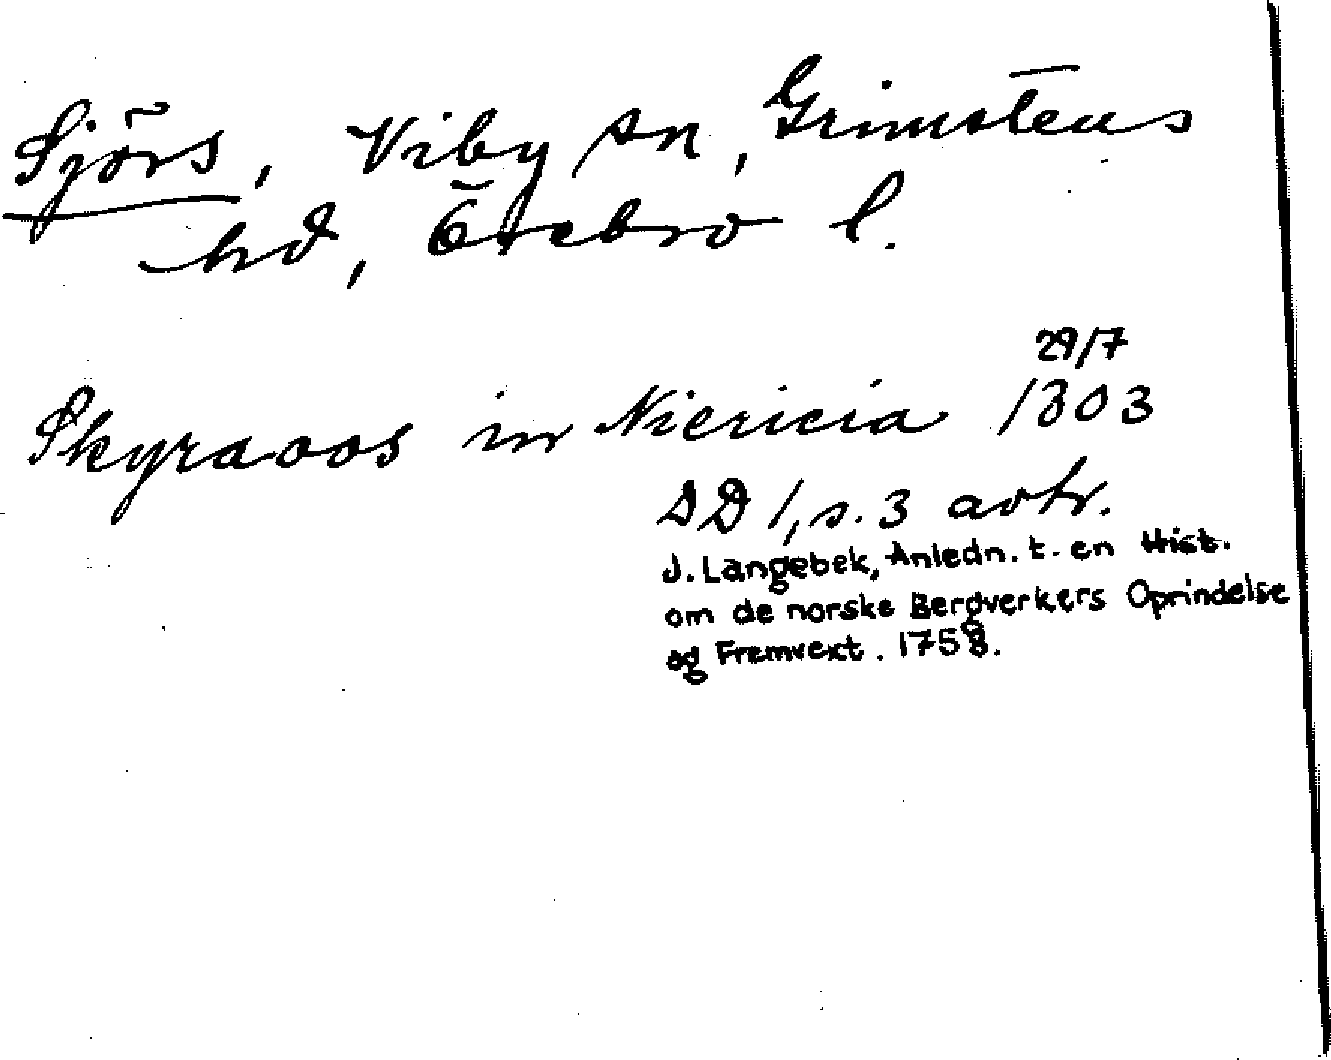 Sjörs, Viby sn, Grimstens
hd, Örebro l.
29/7
Skyraoos in Niericia 1303
SD 1, s. 3 avtr.
J. Langebek, Anledn. t. en Hist.
om de norske Bergverkers Oprindelse
og Fremvext. 1758.